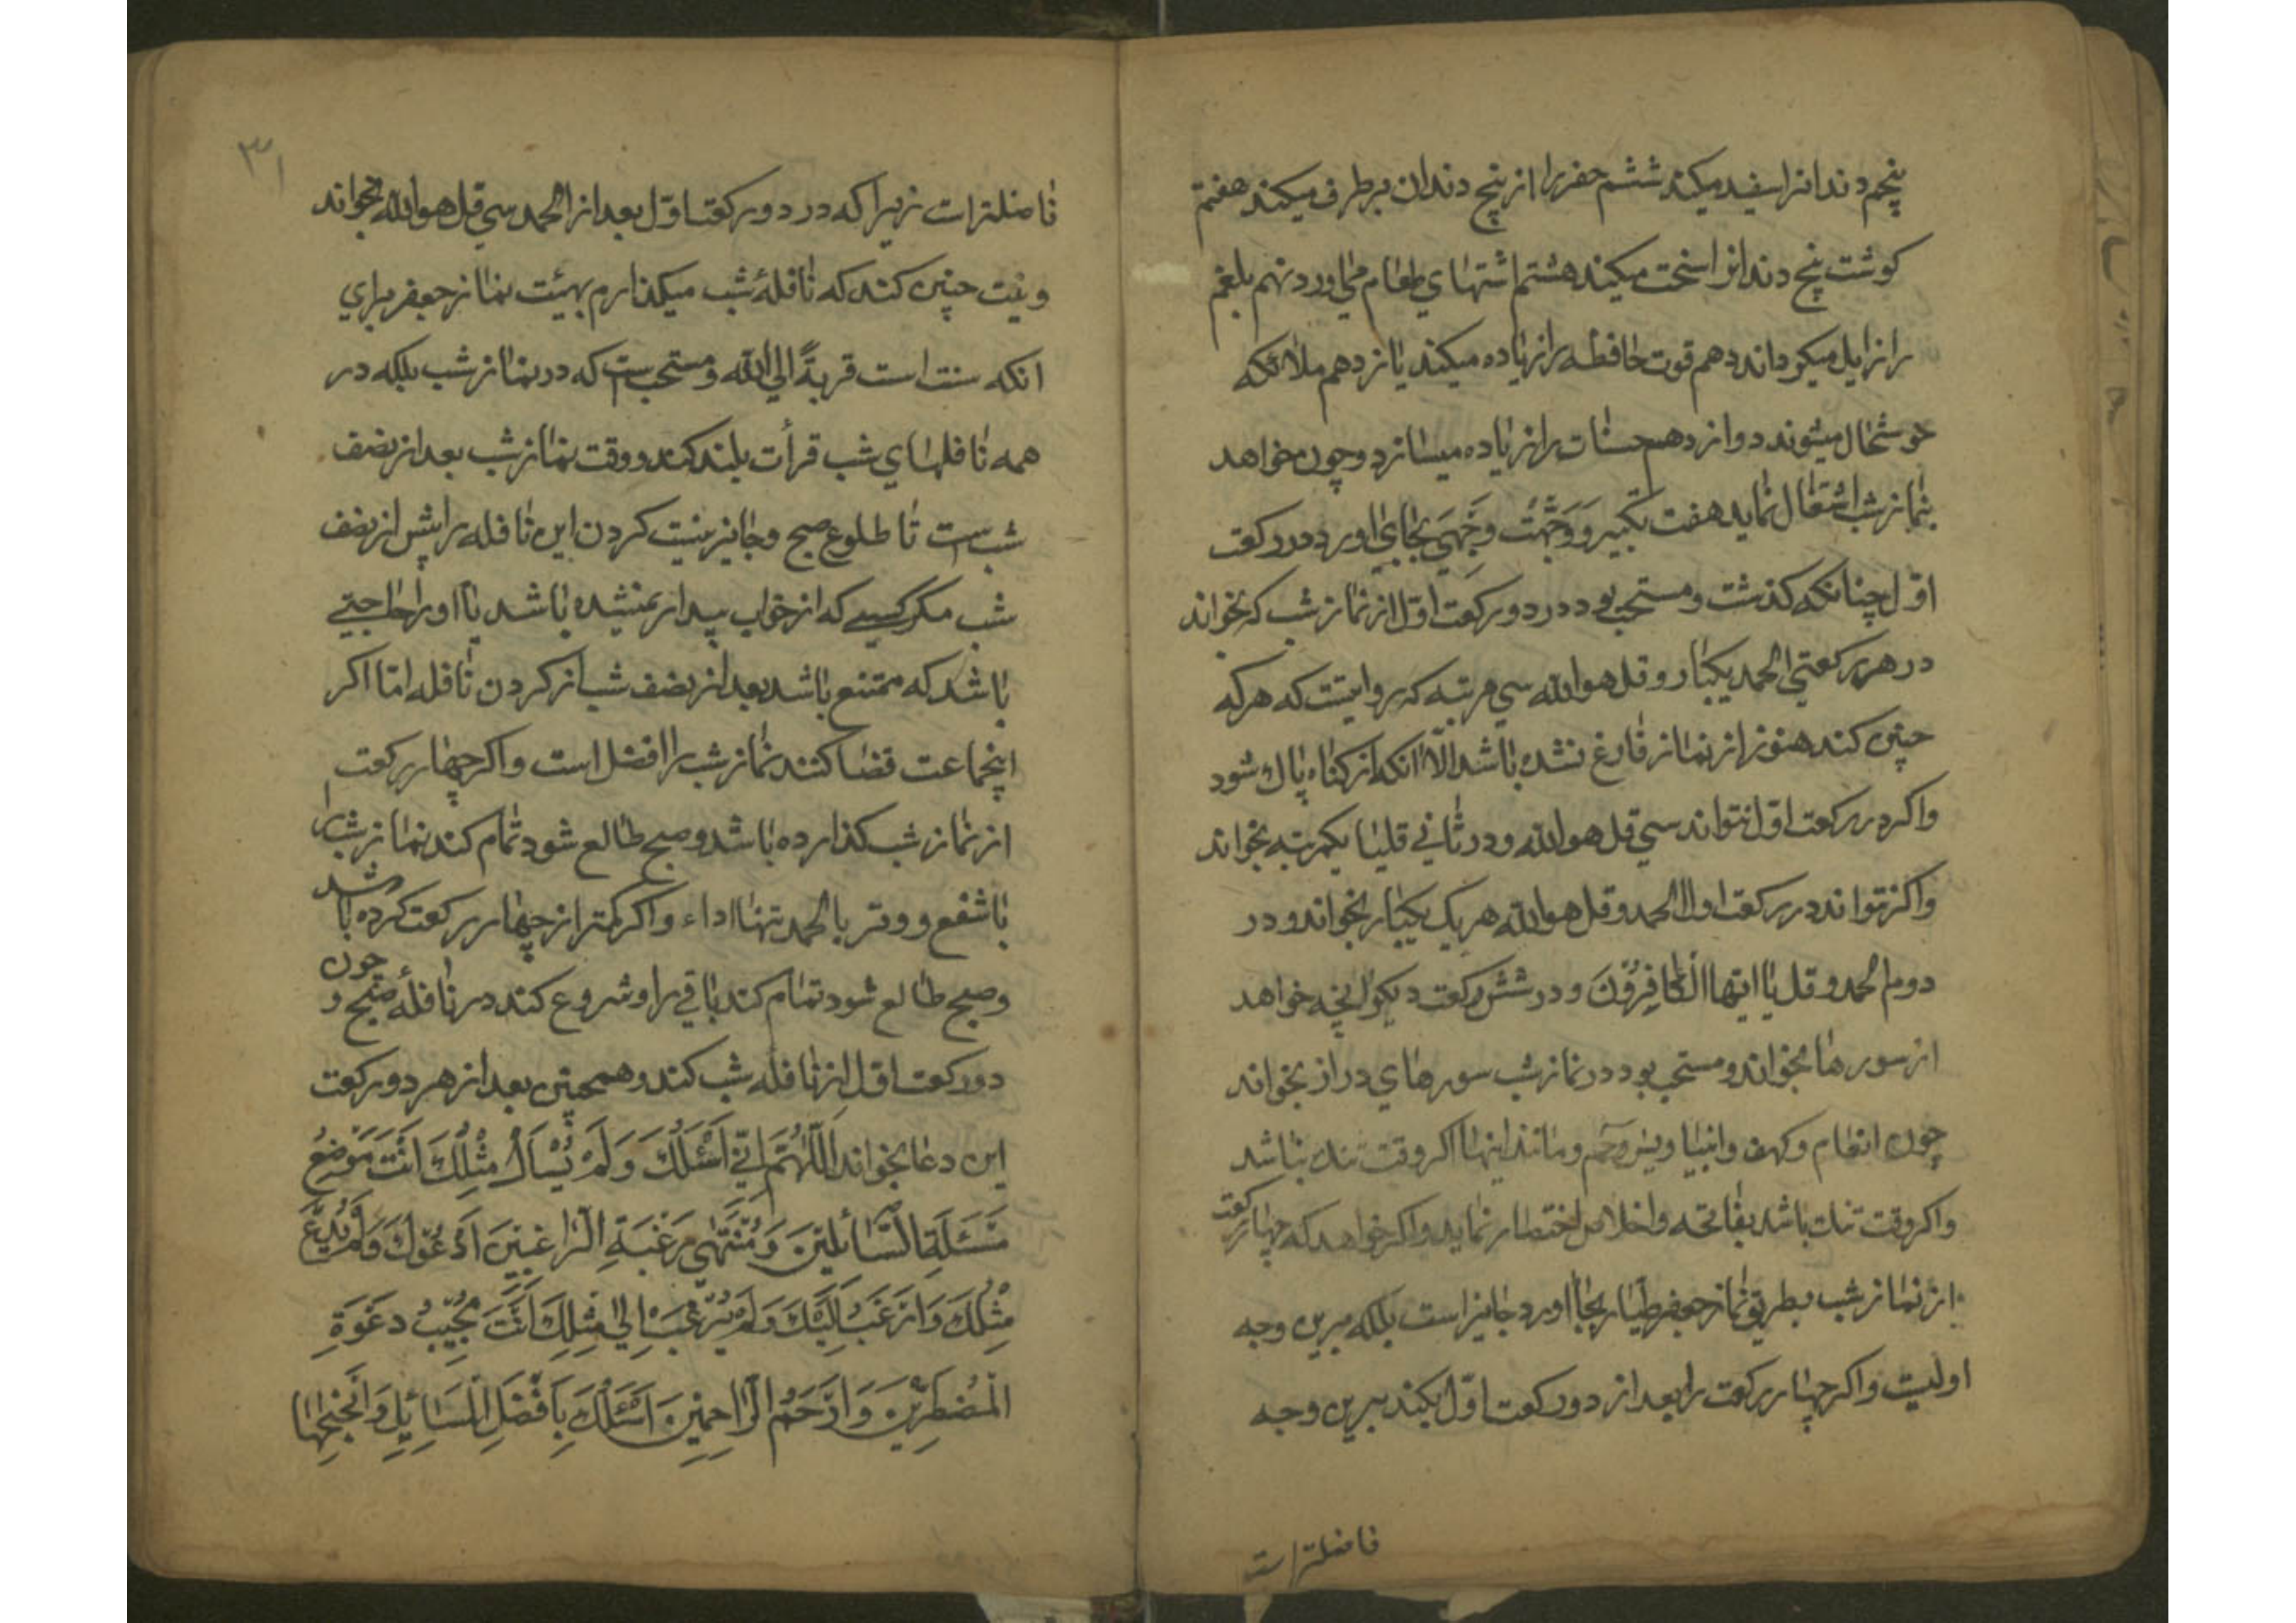 پنجم دندانرا سفید میکند ششم حفر را از پنج دندان برطرف میکند هفتم
کوشت پنج دندانرا سخت میکند هشتم اشتهای طعام می اورد نهم بلغم
را زایل میکرداند دهم قوت حافظه را زیاده میکند یازدهم ملائکه
خوشحال میشوند دوازدهم حسنات را زیاده میسازد و چون خواهد
بنماز شب اشتغال نماید هفت تکبیر و وَجَّهْتُ وَجْهِيَ بجای اورد در رکعت
اوّل چنانکه کذشت و مستحب بود در دو رکعت اوّل از نماز شب که بخواند
در هر رکعتی الحمد یکبار و قل هو الله سی مرتبه که روایتست که هر که
چنین کند هنوز از نماز فارغ نشده باشد الّا انکه از کناه پاك شود
واکر در رکعت اوّل نتواند سی قل هو الله و در ثانی قلیا یکمرتبه بخواند
واکر نتواند در رکعت اول الحمد و قل هو الله هر یک یکبار بخواند و در
دوم الحمد و قل یا ایها الْکَافِرُوْنَ و در شش رکعت دیکر انچه خواهد
از سورها بخواند و مستحب بود در نماز شب سورهای دراز بخواند
چون انعام و کهف و انبیا و یس و حم و مانند اینها اکر وقت تنك نباشد
واکر وقت تنك باشد بفاتحه و اخلاص اختصار نماید واکر خواهد که چهار رکعت
از نماز شب بطریق نماز جعفر طیار بجا اورد جایز است بلکه برین وجه
اولیست واکر چهار رکعت را بعد از دو رکعت اوّل بکند برین وجه
فاضلتر است
۳۱
فاضلتر است زیرا که در دو رکعت اوّل بعد از الحمد سی قل هو الله بخواند
و نیت چنین کند که نافلهٔ شب میکذارم بهیئت نماز جعفر برای
انکه سنت است قربةً الی الله و مستحب است که در نماز شب بلکه در
همه نافلهای شب قرأت بلند کند و وقت نماز شب بعد از نصف
شب است تا طلوع صبح و جایز نیست کردن این نافله را پیش از نصف
شب مکر کسی که از خواب بیدار نمیشده باشد یا او را حاجتی
باشد که ممتنع باشد بعد از نصف شب از کردن نافله امّا اکر
اینجماعت قضا کنند نماز شب را افضل است واکر چهار رکعت
از نماز شب کذارده باشد و صبح طالع شود تمام کند نماز شب را
با شفع و وتر با الحمد تنها اداء واکر کمتر از چهار رکعت کرده باشد
و صبح طالع شود تمام کند باقی را و شروع کند در نافلهٔ صبح و چون
دو رکعت اوّل از نافله شب کند و همچنین بعد از هر دو رکعت
این دعا بخواند اَللّٰهُمَّ اِنّی اَسْئَلُكَ وَلَمْ يُسْأَلْ مِثْلُكَ اَنْتَ مَوْضِعُ
مَسْئَلَةِ السَّائِلِيْنَ وَ مُنْتَهٰى رَغْبَةِ الرَّاغِبِيْنَ اَدْعُوْكَ وَلَمْ يُدْعَ
مِثْلُكَ وَاَرْغَبُ اِلَيْكَ وَلَمْ يُرْغَبْ اِلىٰ مِثْلِكَ اَنْتَ مُجِيْبُ دَعْوَةِ
الْمُضْطَرِّيْنَ وَ اَرْحَمُ الرَّاحِمِيْنَ اَسْئَلُكَ بِاَفْضَلِ الْمَسَائِلِ وَاَنْجَحِهَا